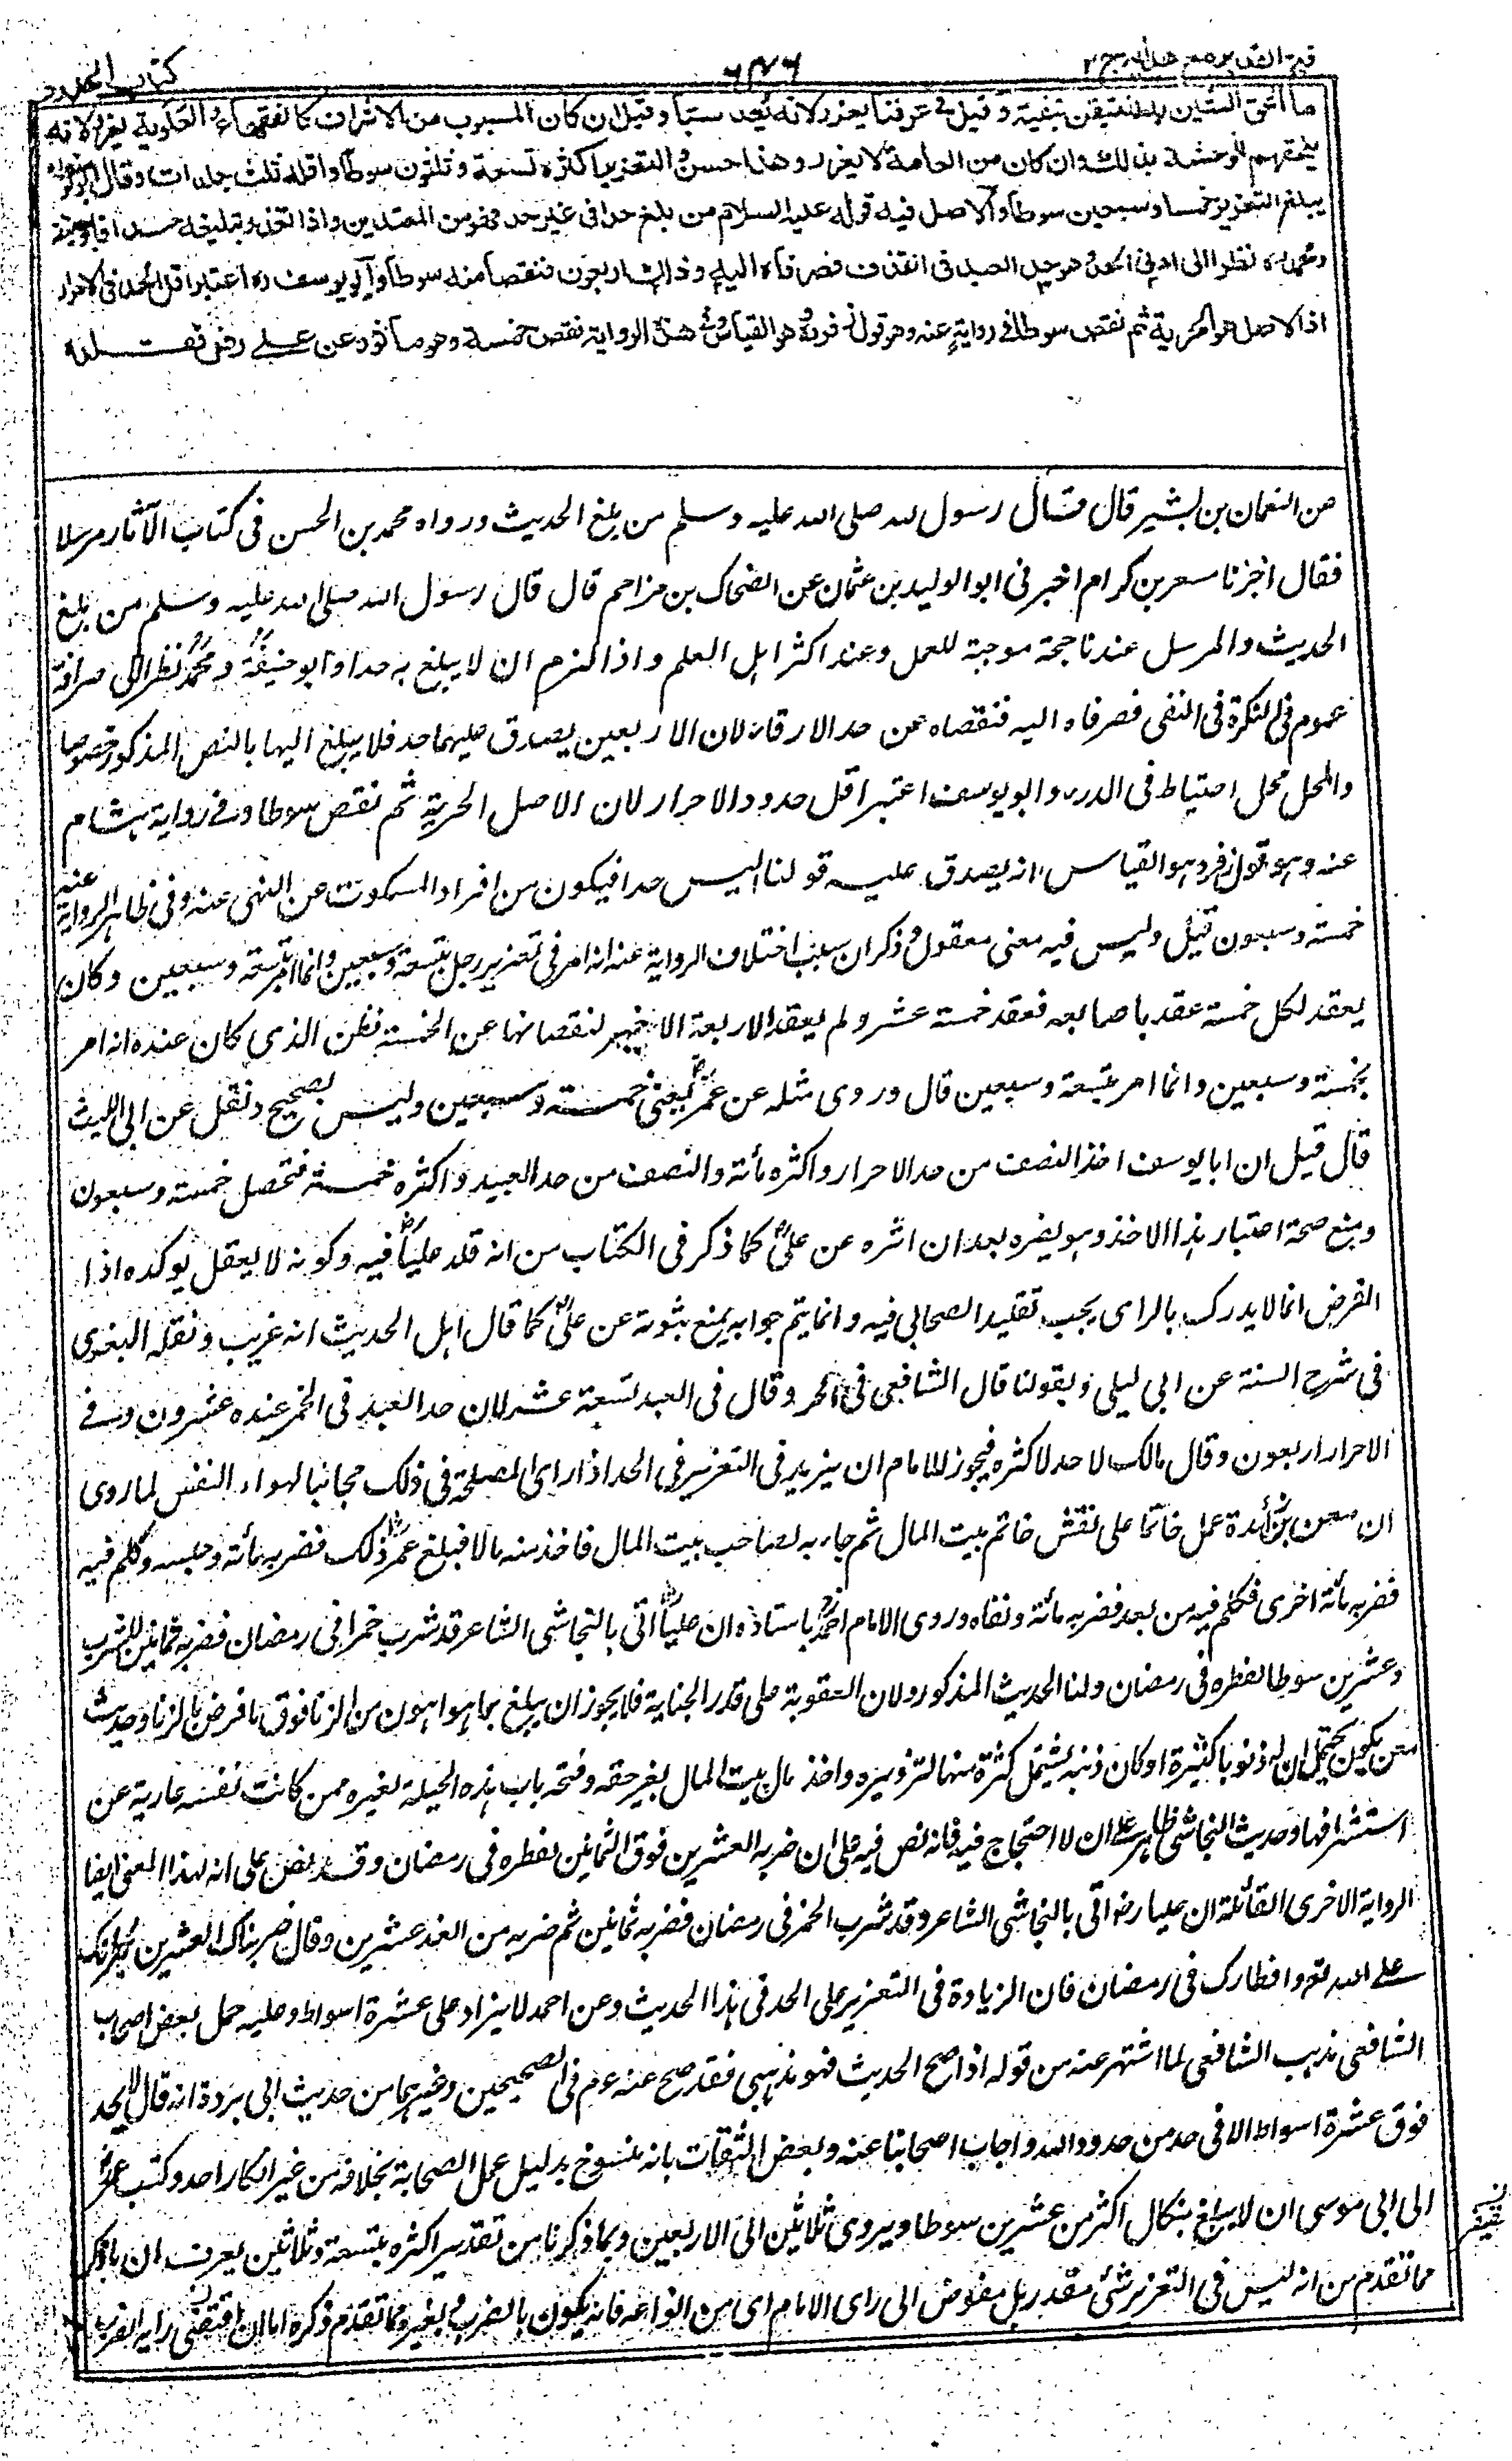 فتح القدير مع هدايه ج ٢
٦٧٦
كتاب الحدود
ما الحق الشين به للتيقن بنفيه وقيل في عرفنا يعزر لانه يعد سبا وقيل ان كان المسبوب من الاشراف كالفقهاء والعلوية يعزر لانه
يلحقهم الوحشة بذلك وان كان من العامة لا يعزر وهذا حسن والتعزير اكثره تسعة وثلثون سوطا واقله ثلث جلدات وقال ابو يوسف
يبلغ التعزير خمسا وسبعين سوطا والاصل فيه قوله عليه السلام من بلغ حدا في غير حد فهو من المعتدين واذا تعذر تبليغه حدا فابو حنيفة
ومحمد ره نظرا الى ادنى الحد وهو حد العبد في القذف فصرفاه اليه وذلك اربعون فنقصا منه سوطا وابو يوسف ره اعتبر اقل الحد في الاحرار
اذ الاصل هو الحرية ثم نقص سوطا في رواية عنه وهو قول زفر وهو القياس وفي هذه الرواية نقص خمسة وهو ماثور عن علي رض فقلده
عن النعمان بن بشير قال قال رسول لله صلى الله عليه وسلم من بلغ الحديث ورواه محمد بن الحسن فى كتاب الآثار مرسلا
فقال اخبرنا مسعر بن كدام اخبرنى ابو الوليد بن عثمان عن الضحاك بن مزاحم قال قال رسول الله صلى الله عليه وسلم من بلغ
الحديث والمرسل عندنا حجة موجبة للعمل وعند اكثر اهل العلم واذا لزم ان لا يبلغ به حدا وابو حنيفة ومحمد نظرا الى صرافة
عموم فى النكرة فى النفى فصرفاه اليه فنقصاه عن حد الارقاء لان الاربعين يصدق عليهما حد فلا يبلغ اليها بالنص المذكور خصوصا
والمحل محل احتياط فى الدرء وابو يوسف اعتبر اقل حدود الاحرار لان الاصل الحرية ثم نقص سوطا وفى رواية هشام
عنه وهو قول زفر وهو القياس انه يصدق عليه قولنا ليس حدا فيكون من افراد المسكوت عن النهى عنه وفى ظاهر الرواية عنه
خمسة وسبعون قيل وليس فيه معنى معقول وذكر ان سبب اختلاف الرواية عنه انه امر فى تعزير رجل بتسعة وسبعين وانما امر بتسعة وسبعين وكان
يعقد لكل خمسة عقد باصابعه فعقد خمسة عشر ولم يعقد الاربعة الاخيرة لنقصانها عن الخمسة فظن الذى كان عنده انه امر
بخمسة وسبعين وانما امر بتسعة وسبعين قال وروى مثله عن عمر يعنى خمسة وسبعين وليس بصحيح ونقل عن ابى الليث
قال قيل ان ابا يوسف اخذ النصف من حد الاحرار واكثره مائة والنصف من حد العبيد واكثره خمسة فتحصل خمسة وسبعون
ومنع صحة اعتبار هذا الاخذ وهو يضره بعد ان اثره عن على كما ذكر فى الكتاب من انه قلد عليا فيه وكونه لا يعقل يوكده اذا
الفرض انما لا يدرك بالراى يجب تقليد الصحابى فيه وانما يتم جوابه بمنع ثبوته عن على كما قال اهل الحديث انه غريب ونقله البغوى
فى شرح السنة عن ابى ليلى وبقولنا قال الشافعى فى الحر وقال فى العبد تسعة عشر لان حد العبد فى الخمر عنده عشرون وفى
الاحرار اربعون وقال مالك لا حد لاكثره فيجوز للامام ان يزيد فى التعزير فى الحد اذا راى المصلحة فى ذلك مجانبا لهواء النفس لما روى
ان معن بن زائدة عمل خاتما على نقش خاتم بيت المال ثم جاء به لصاحب بيت المال فاخذ منه مالا فبلغ عمر ذلك فضربه مائة وحبسه وكلم فيه
فضربه مائة اخرى فكلم فيه من بعد فضربه مائة ونفاه وروى الامام احمد باسناده ان عليا اتى بالنجاشى الشاعر قد شرب خمرا فى رمضان فضربه ثمانين للشرب
وعشرين سوطا لفطره فى رمضان ولنا الحديث المذكور ولان العقوبة على قدر الجناية فلا يجوز ان يبلغ بما هو اهون من الزنا فوق ما فرض بالزنا وحديث
معن يكون يحتمل ان له ذنوبا كثيرة او كان ذنبه يشتمل كثرة منها التزويره واخذ مال بيت المال بغير حقه وفتحه باب هذه الحيلة لغيره ممن كانت نفسه عارية عن
استشرافها وحديث النجاشى ظاهر على ان لا احتجاج فيه فانه نص فيه على ان ضربه العشرين فوق الثمانين لفطره فى رمضان وقد نص على انه لهذا المعنى ايضا
الرواية الاخرى القائلة ان عليا رض اتى بالنجاشى الشاعر وقد شرب الخمر فى رمضان فضربه ثمانين ثم ضربه من الغد عشرين وقال ضربناك العشرين بجرأتك
على الله تعو وافطارك فى رمضان فان الزيادة فى التعزير على الحد فى هذا الحديث وعن احمد لا يزاد على عشرة اسواط وعليه حمل بعض اصحاب
الشافعى مذهب الشافعى لما اشتهر عنه من قوله اذا صح الحديث فهو مذهبى فقد صح عنه عم فى الصحيحين وغيرهما من حديث ابى بردة انه قال لا يجلد
فوق عشرة اسواط الا فى حد من حدود الله واجاب اصحابنا عنه وبعض الثقات بانه منسوخ بدليل عمل الصحابة بخلافه من غير انكار احد وكتب عمر
الى ابى موسى ان لا يبلغ بنكال اكثر من عشرين سوطا ويروى ثلاثين الى الاربعين وبما ذكرنا من تقدير اكثره بتسعة وثلاثين يعرف ان ما ذكر
مما تقدم من انه ليس فى التعزير شئ مقدر بل مفوض الى راى الامام اى من انواعه فانه يكون بالضرب وبغيره مما تقدم ذكره اما ان اقتضى رايه الضرب